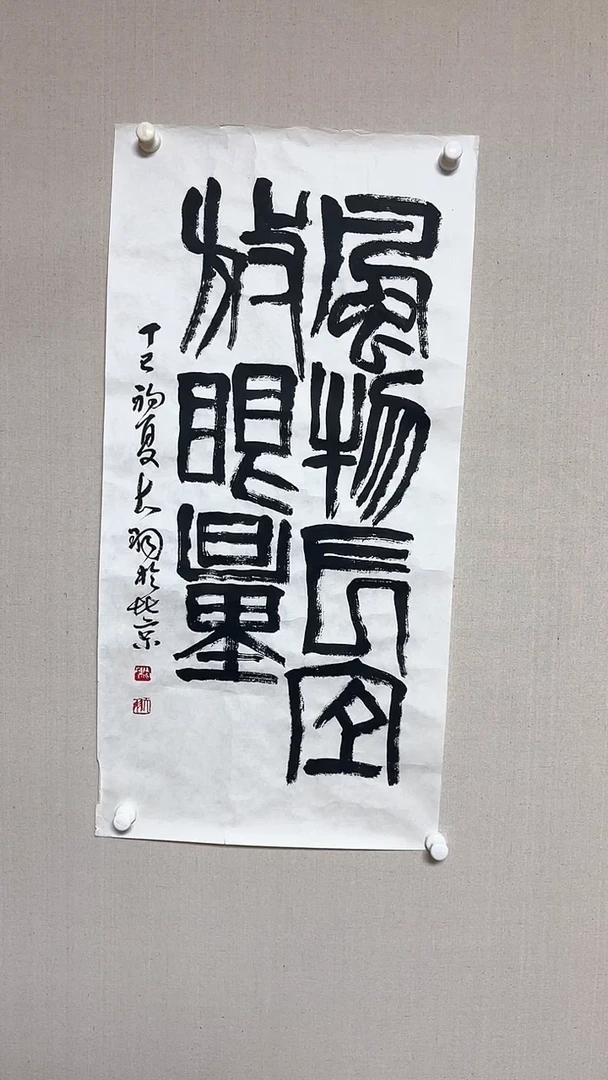 風物長宜
放眼量
丁巳初夏大羽於北京